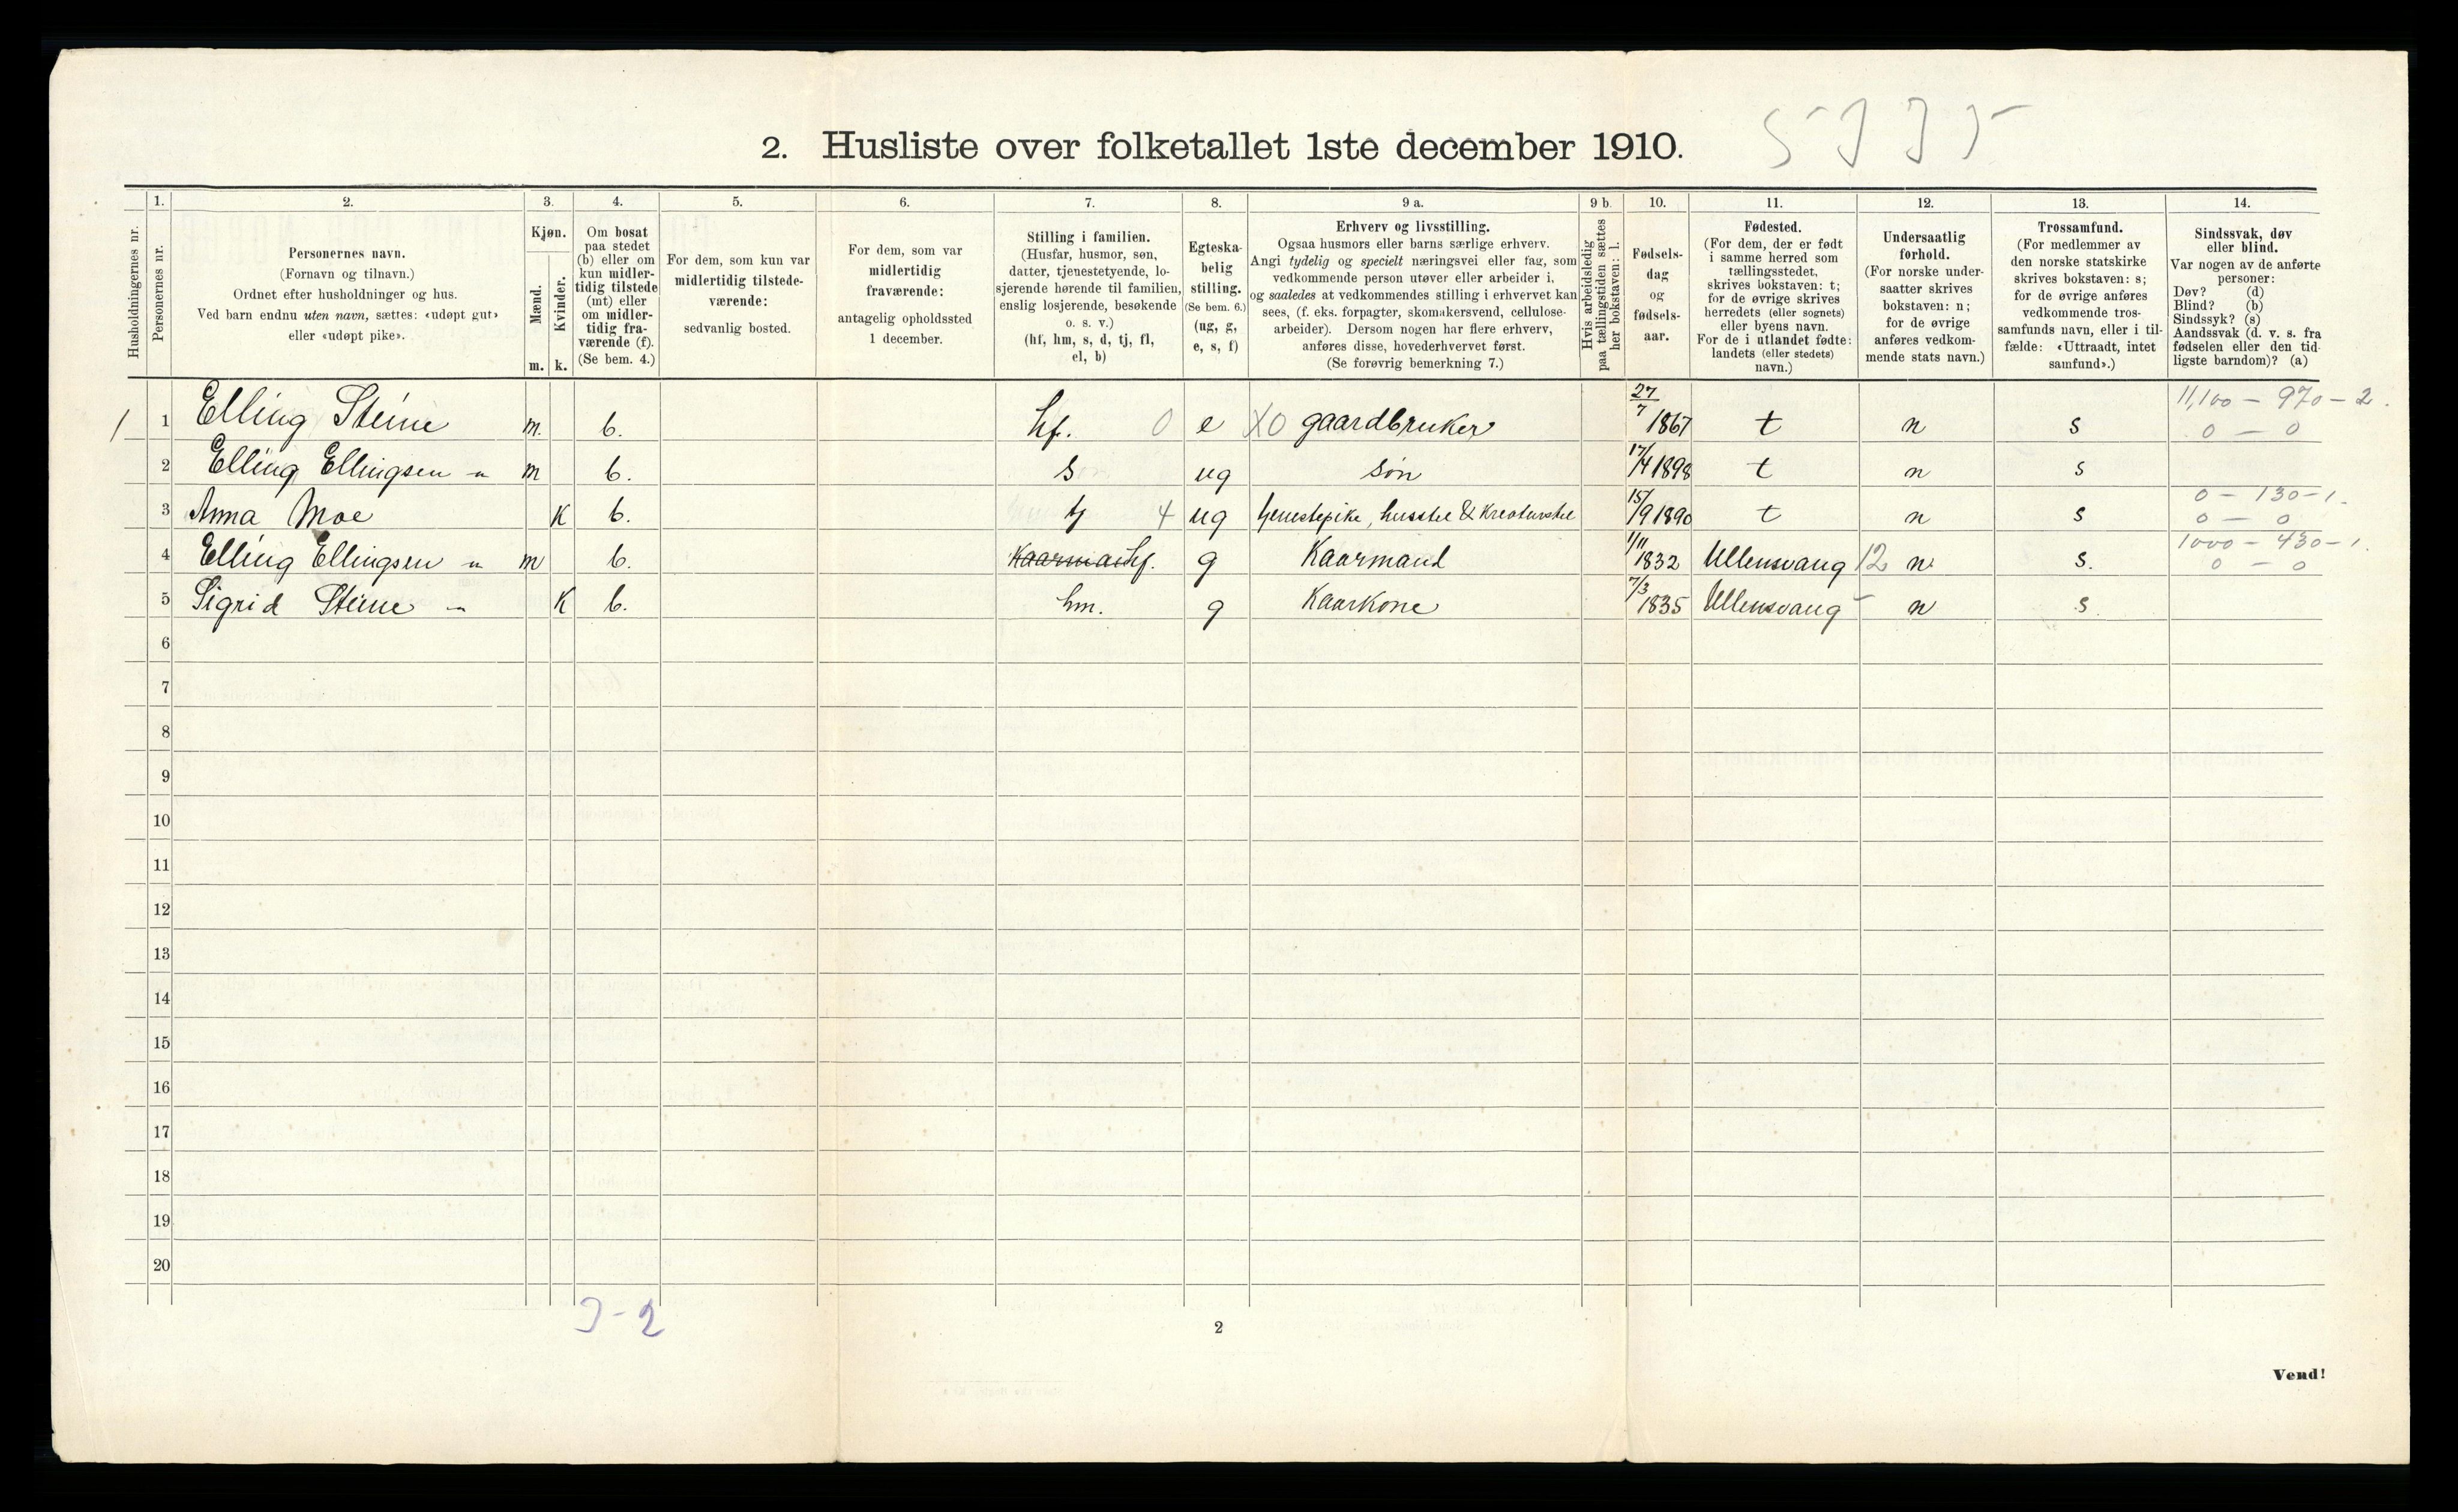 5 3 3 5
2. Husliste over folketallet 1ste december 1910.
Husholdningernes nr.
1.
Personernes nr.
2.
Personernes navn.
(Fornavn og tilnavn.)
Ordnet efter husholdninger og hus.
Ved barn endnu uten navn, sættes: «udøpt gut»
eller «udøpt pike».
3.
Kjøn.
Mænd.
Kvinder.
m. k.
4.
Om bosat
paa stedet
(b) eller om
kun midler-
tidig tilstede
(mt) eller
om midler-
tidig fra-
værende (f).
(Se bem. 4.)
5.
For dem, som kun var
midlertidig tilstede-
værende:
sedvanlig bosted.
6.
For dem, som var
midlertidig
fraværende:
antagelig opholdssted
1 december.
7.
Stilling i familien.
(Husfar, husmor, søn,
datter, tjenestetyende, lo-
sjerende hørende til familien,
enslig losjerende, besøkende
o. s. v.)
(hf, hm, s, d, tj, fl,
el, b)
8.
Egteska-
belig
stilling.
(Se bem. 6.)
(ug, g,
e, s, f)
9 a.
Erhverv og livsstilling.
Ogsaa husmors eller barns særlige erhverv.
Angi tydelig og specielt næringsvei eller fag, som
vedkommende person utøver eller arbeider i,
og saaledes at vedkommendes stilling i erhvervet kan
sees, (f. eks. forpagter, skomakersvend, cellulose-
arbeider). Dersom nogen har flere erhverv,
anføres disse, hovederhvervet først.
(Se forøvrig bemerkning 7.)
9 b.
Hvis arbeidsledig
paa tællingstiden sættes
her bokstaven: l.
10.
Fødsels-
dag
og
fødsels-
aar.
11.
Fødested.
(For dem, der er født
i samme herred som
tællingsstedet,
skrives bokstaven: t;
for de øvrige skrives
herredets (eller sognets)
eller byens navn.
For de i utlandet fødte:
landets (eller stedets)
navn.)
12.
Undersaatlig
forhold.
(For norske under-
saatter skrives
bokstaven: n;
for de øvrige
anføres vedkom-
mende stats navn.)
13.
Trossamfund.
(For medlemmer av
den norske statskirke
skrives bokstaven: s;
for de øvrige anføres
vedkommende tros-
samfunds navn, eller i til-
fælde: «Uttraadt, intet
samfund».)
14.
Sindssvak, døv
eller blind.
Var nogen av de anførte
personer:
Døv? (d)
Blind? (b)
Sindssyk? (s)
Aandssvak (d. v. s. fra
fødselen eller den tid-
ligste barndom)? (a)
1 1 Elling Steine m. b. hf. 0 e X0 gaardbruker 27/7 1867 t n s 11,100 — 970 — 2. 0 — 0
2 Elling Ellingsen „ m b. s ug søn 17/4 1898 t n s
3 Anna Moe K b. tj 4 ug tjenestepike, husstel & Kreaturstel 15/9 1890 t n s 0 — 130 — 1. 0 — 0
4 Elling Ellingsen „ m b. hf. g Kaarmand 1/11 1832 Ullensvang 12 n s. 1000 — 430 — 1. 0 — 0
5 Sigrid Steine „ K b. hm. g Kaarkone 7/3 1835 Ullensvang n s.
6
7
8
9
10
11
12
13
14
15
16
17
18
19
20
3-2
2
Vend!